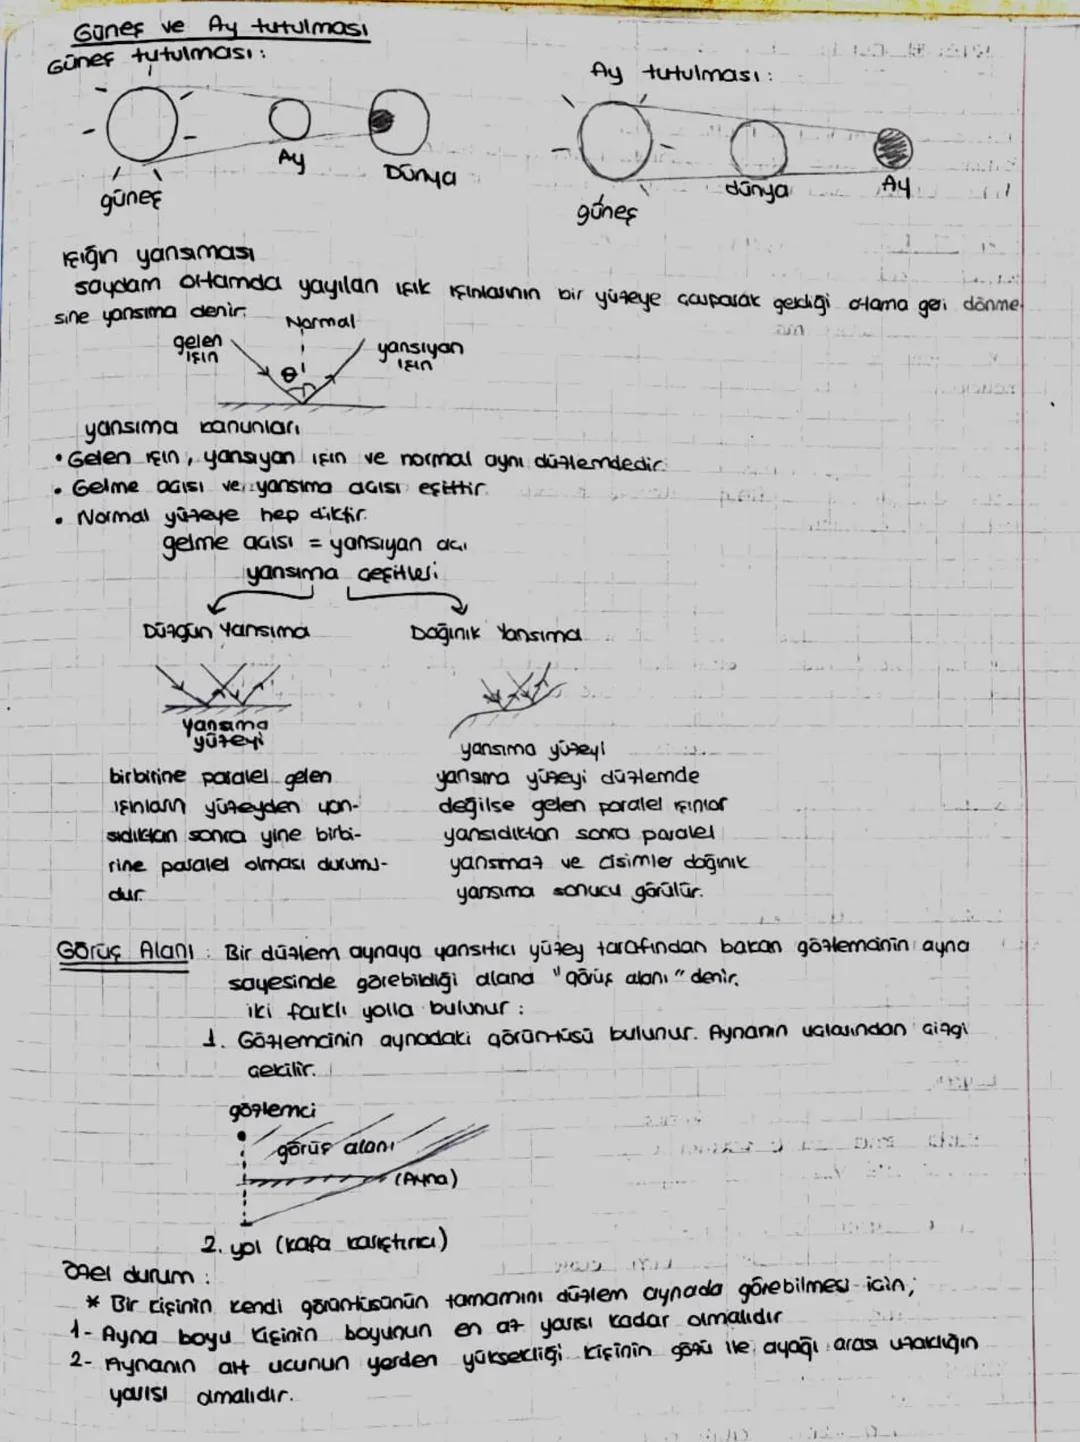 Güneş ve Ay tutulması
Güneş tutulması:
Ay
Dünya
güneş
Ay tutulması:
dünya
Ay
güneş
ışığın yansıması
saydam ortamda yayılan ışık ışınlarının bir yüzeye çarparak geldiği ortama geri dönme-
sine yansıma denir.
Normal
gelen
ışın
yansıyan
ışın
θ
yansıma kanunları
• Gelen ışın, yansıyan ışın ve normal aynı düzlemdedir.
• Gelme açısı ve yansıma açısı eşittir.
• Normal yüzeye hep diktir.
gelme açısı = yansıyan açı
yansıma çeşitleri
Düzgün Yansıma
Yansıma
yüzeyi
birbirine paralel gelen
ışınların yüzeyden yan-
sıdıktan sonra yine birbi-
rine paralel olması durumu-
dur.
Dağınık Yansıma
yansıma yüzeyi
yansıma yüzeyi düzlemde
değilse gelen paralel ışınlar
yansıdıktan sonra paralel
yansımaz ve cisimler dağınık
yansıma sonucu görülür.
Görüş Alanı: Bir düzlem aynaya yansıtıcı yüzey tarafından bakan gözlemcinin ayna
sayesinde görebildiği alana "görüş alanı" denir.
iki farklı yolla bulunur:
1. Gözlemcinin aynadaki görüntüsü bulunur. Aynanın uçlarından çizgi
çekilir.
gözlemci
görüş alanı
(Ayna)
2. yol (kafa karıştırıcı)
özel durum:
* Bir kişinin kendi görüntüsünün tamamını düzlem aynada görebilmesi için;
1- Ayna boyu kişinin boyunun en az yarısı kadar olmalıdır
2- Aynanın alt ucunun yerden yüksekliği kişinin gözü ile ayağı arası uzaklığın
yarısı olmalıdır.